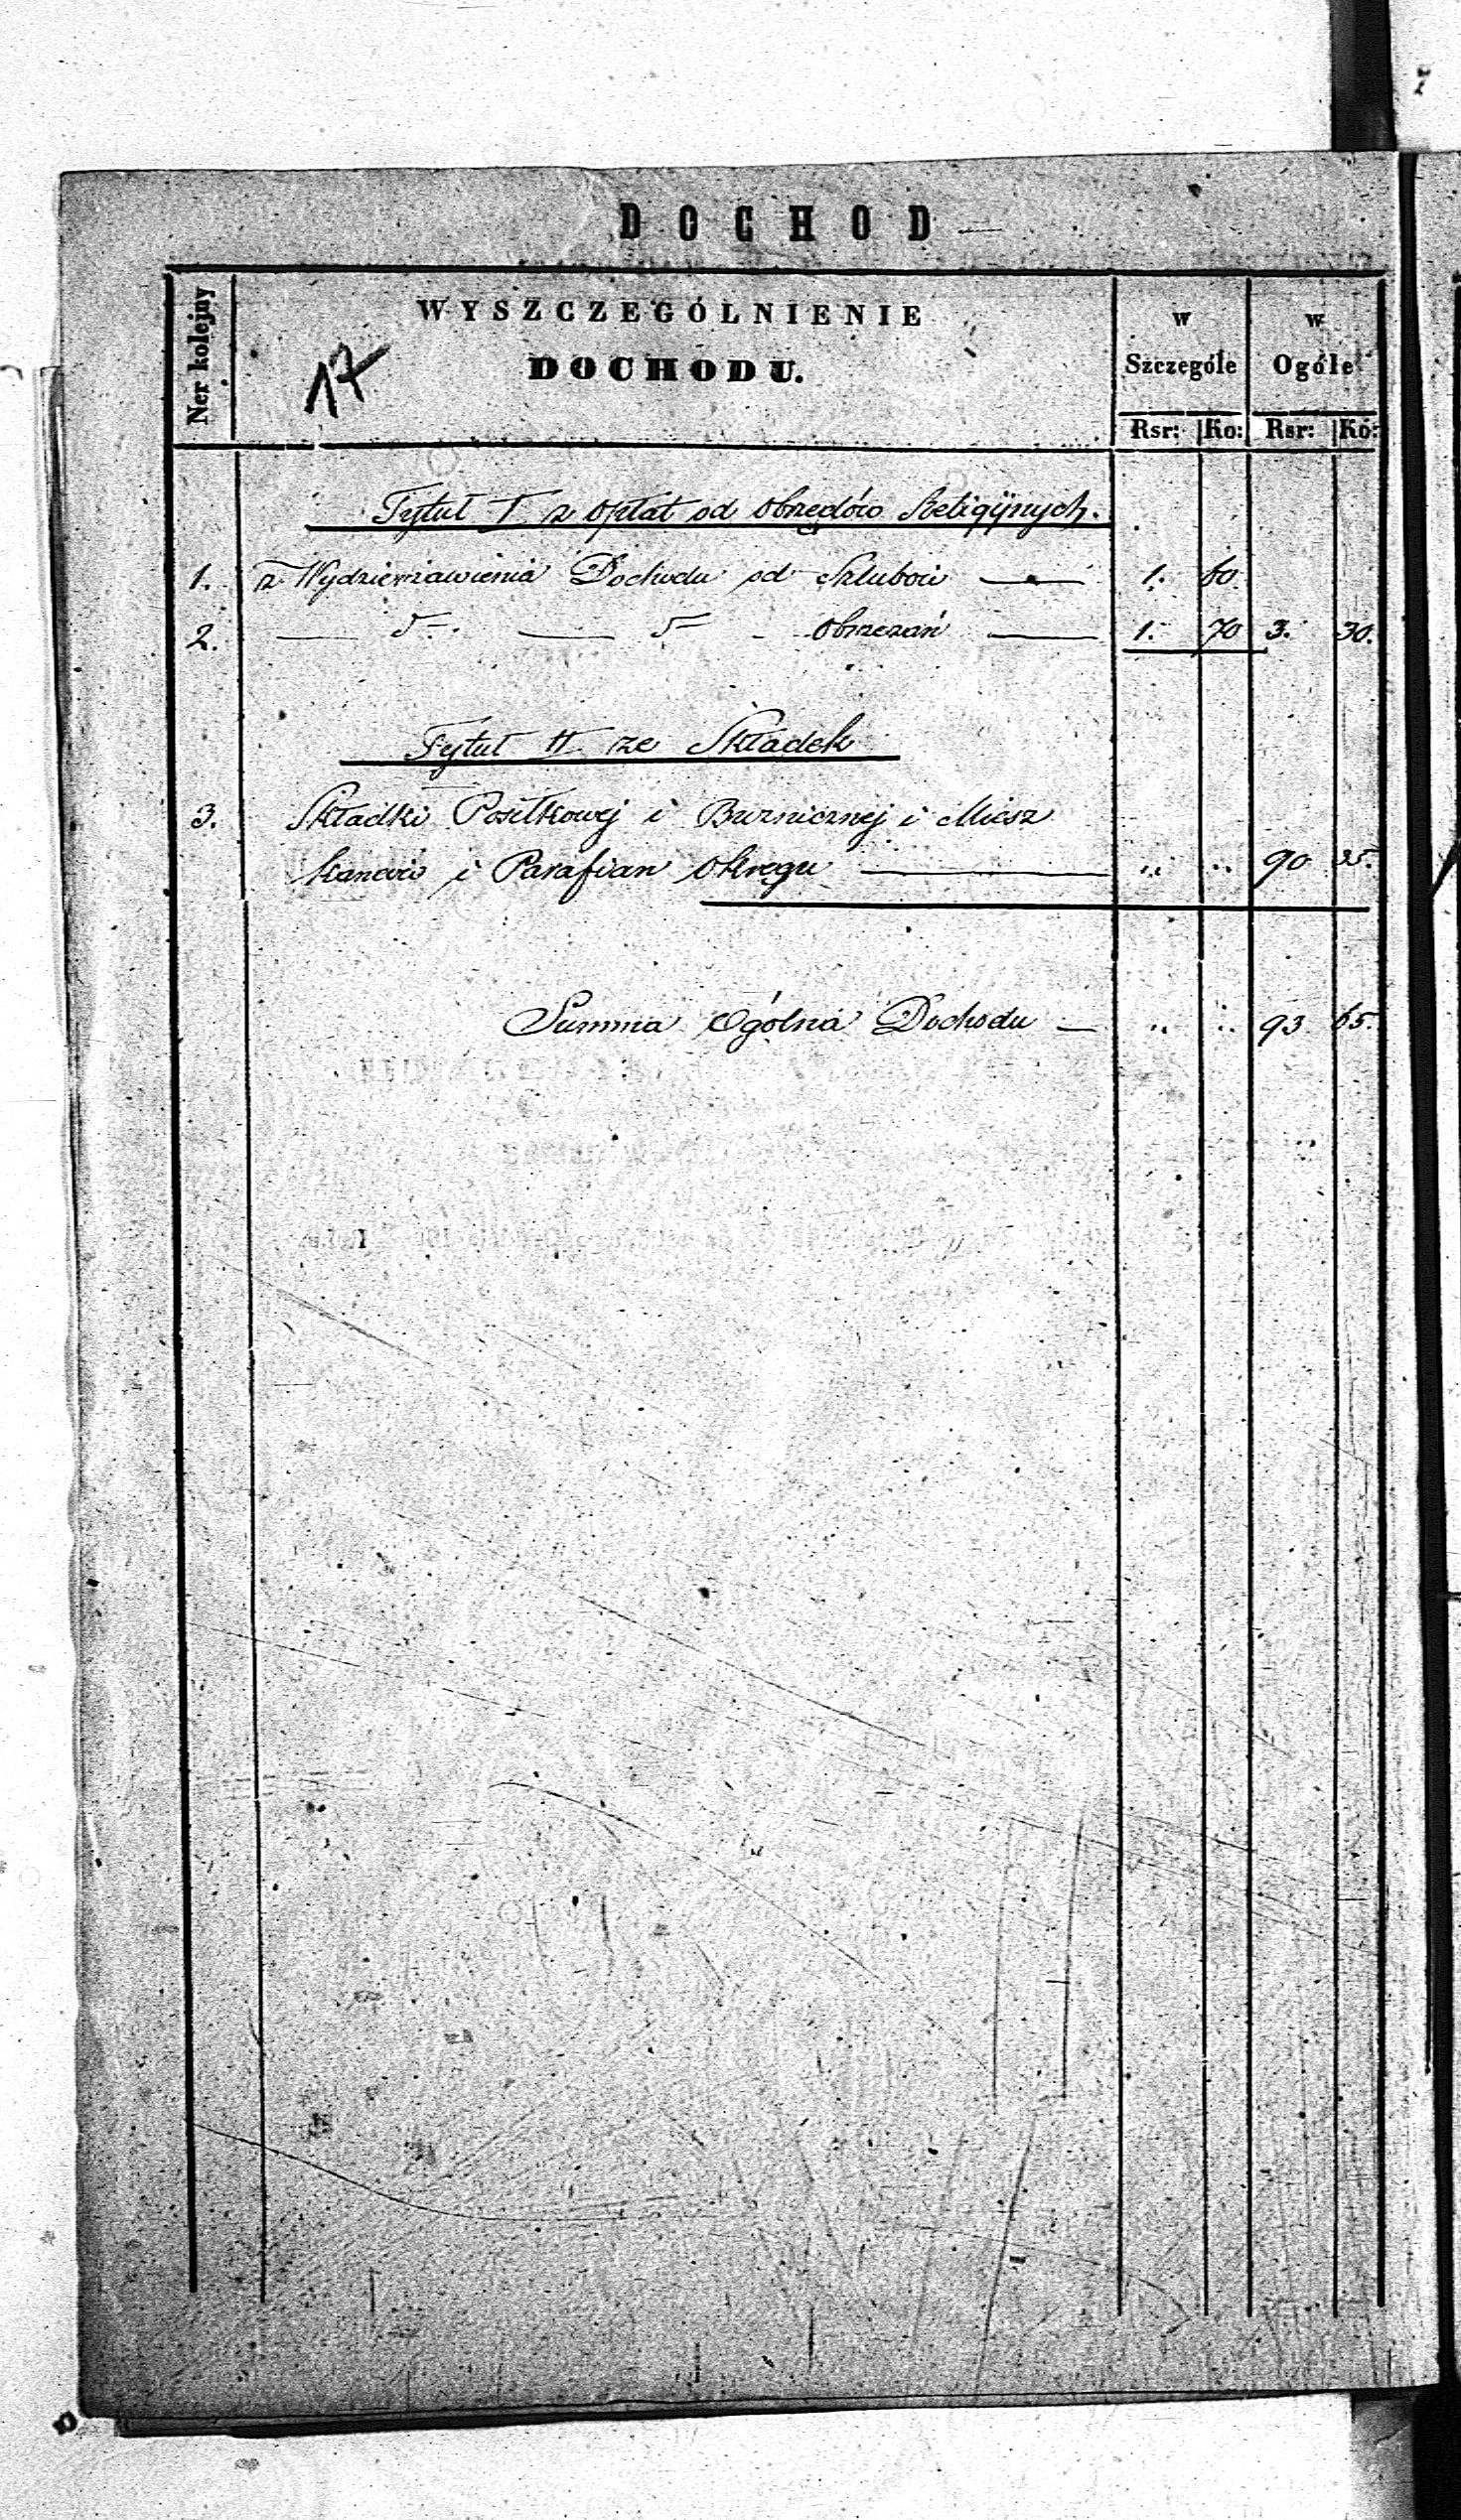 DOCHOD
Ner kolejny
WYSZCZEGÓLNIENIE
DOCHODU.
17
w Szczególe
w Ogóle
Rsr: Ko: Rsr: Ko:
Tytuł I z opłat od obrzędów Religijnych.
1. z Wydzierżawienia Dochodu od Szlubów 1. 60
2. obrzezań 1. 70 3. 30.
Tytuł II ze Składek
3. Składki Posiłkowej i Burnicznej i Miesz
kańców i Parafian okręgu " " 90 35.
Summa Ogólna Dochodu " " 93 65.